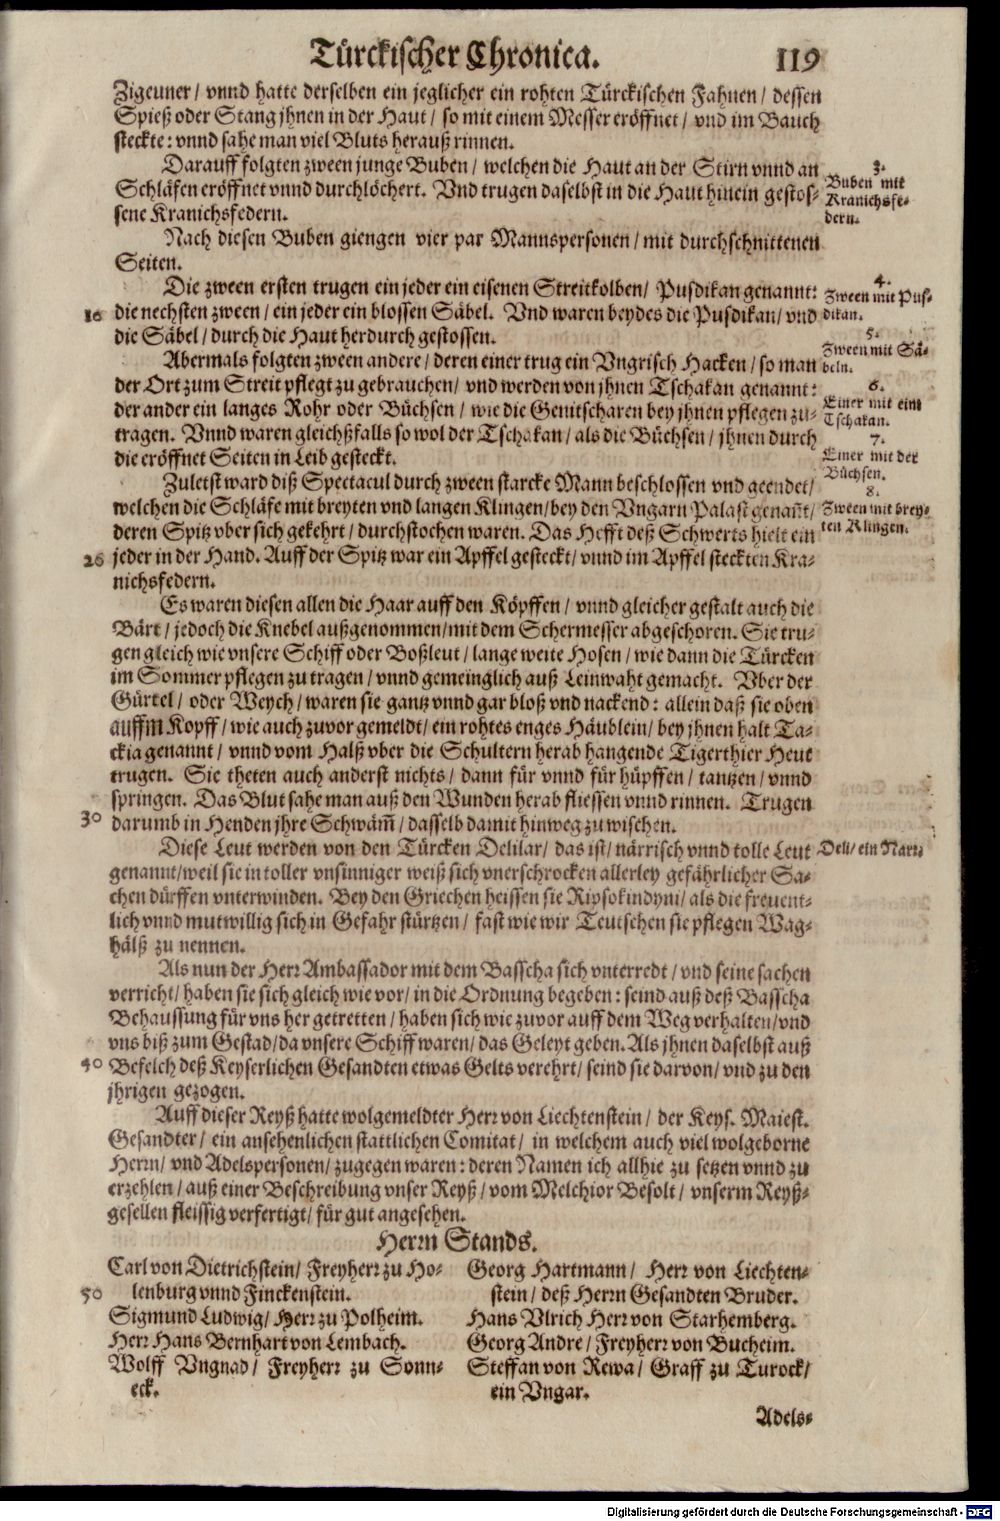 Türckischer Chronica. 119
Zigeuner / vnnd hatte derselben ein jeglicher ein rohten Türckischen Fahnen / dessen
Spieß oder Stang jhnen in der Haut / so mit einem Messer eröffnet / vnd im Bauch
steckte: vnnd sahe man viel Bluts herauß rinnen.
Darauff folgten zween junge Buben / welchen die Haut an der Stirn vnnd an
Schläfen eröffnet vnnd durchlöchert. Vnd trugen daselbst in die Haut hinein gestos-
sene Kranichsfedern.
3.
Buben mit
Kranichsfe-
dern.
Nach diesen Buben giengen vier par Mannspersonen / mit durchschnittenen
Seiten.
Die zween ersten trugen ein jeder ein eisenen Streitkolben / Pusdikan genannt:
10 die nechsten zween / ein jeder ein blossen Säbel. Vnd waren beydes die Pusdikan / vnd
die Säbel / durch die Haut herdurch gestossen.
4.
Zween mit Pus-
dikan.
5.
Zween mit Sä-
beln.
Abermals folgten zween andere / deren einer trug ein Vngrisch Hacken / so man
der Ort zum Streit pflegt zu gebrauchen / vnd werden von jhnen Tschakan genannt:
der ander ein langes Rohr oder Büchsen / wie die Genitscharen bey jhnen pflegen zu-
tragen. Vnnd waren gleichßfalls so wol der Tschakan / als die Büchsen / jhnen durch
die eröffnet Seiten in Leib gesteckt.
6.
Einer mit eim
Tschakan.
7.
Einer mit der
Büchsen.
Zuletst ward diß Spectacul durch zween starcke Mann beschlossen vnd geendet /
welchen die Schläfe mit breyten vnd langen Klingen / bey den Vngarn Palast genañt /
deren Spitz vber sich gekehrt / durchstochen waren. Das Hefft deß Schwerts hielt ein
20 jeder in der Hand. Auff der Spitz war ein Apffel gesteckt / vnnd im Apffel steckten Kra-
nichsfedern.
8.
Zween mit brey-
ten Klingen.
Es waren diesen allen die Haar auff den Köpffen / vnnd gleicher gestalt auch die
Bärt / jedoch die Knebel außgenommen / mit dem Schermesser abgeschoren. Sie tru-
gen gleich wie vnsere Schiff oder Boßleut / lange weite Hosen / wie dann die Türcken
im Sommer pflegen zu tragen / vnnd gemeinglich auß Leinwaht gemacht. Vber der
Gürtel / oder Weych / waren sie gantz vnnd gar bloß vnd nackend: allein daß sie oben
auffm Kopff / wie auch zuvor gemeldt / ein rohtes enges Häublein / bey jhnen halt Ta-
ckia genannt / vnnd vom Halß vber die Schultern herab hangende Tigerthier Heut
trugen. Sie theten auch anderst nichts / dann für vnnd für hüpffen / tantzen / vnnd
springen. Das Blut sahe man auß den Wunden herab fliessen vnnd rinnen. Trugen
30 darumb in Henden jhre Schwäm̃ / dasselb damit hinweg zu wischen.
Diese Leut werden von den Türcken Delilar / das ist / närrisch vnnd tolle Leut
genannt / weil sie in toller vnsinniger weiß sich vnerschrocken allerley gefährlicher Sa-
chen dürffen vnterwinden. Bey den Griechen heissen sie Ripsokindyni / als die freuent-
lich vnnd mutwillig sich in Gefahr stürtzen / fast wie wir Teutschen sie pflegen Wag-
hälß zu nennen.
Deli / ein Narr.
Als nun der Herr Ambassador mit dem Basscha sich vnterredt / vnd seine sachen
verricht / haben sie sich gleich wie vor / in die Ordnung begeben: seind auß deß Basscha
Behaussung für vns her getretten / haben sich wie zuvor auff dem Weg verhalten / vnd
vns biß zum Gestad / da vnsere Schiff waren / das Geleyt geben. Als jhnen daselbst auß
40 Befelch deß Keyserlichen Gesandten etwas Gelts verehrt / seind sie darvon / vnd zu den
jhrigen gezogen.
Auff dieser Reyß hatte wolgemeldter Herr von Liechtenstein / der Keys. Maiest.
Gesandter / ein ansehenlichen stattlichen Comitat / in welchem auch viel wolgeborne
Herrn / vnd Adelspersonen / zugegen waren: deren Namen ich allhie zu setzen vnnd zu
erzehlen / auß einer Beschreibung vnser Reyß / vom Melchior Besolt / vnserm Reyß-
gesellen fleissig verfertigt / für gut angesehen.
Herrn Stands.
Carl von Dietrichstein / Freyherr zu Ho-
50 lenburg vnnd Finckenstein.
Sigmund Ludwig / Herr zu Polheim.
Herr Hans Bernhart von Lembach.
Wolff Vngnad / Freyherr zu Sonn-
eck.
Georg Hartmann / Herr von Liechten-
stein / deß Herrn Gesandten Bruder.
Hans Vlrich Herr von Starhemberg.
Georg Andre / Freyherr von Bucheim.
Steffan von Rewa / Graff zu Turock /
ein Vngar.
Adels-
Digitalisierung gefördert durch die Deutsche Forschungsgemeinschaft - DFG